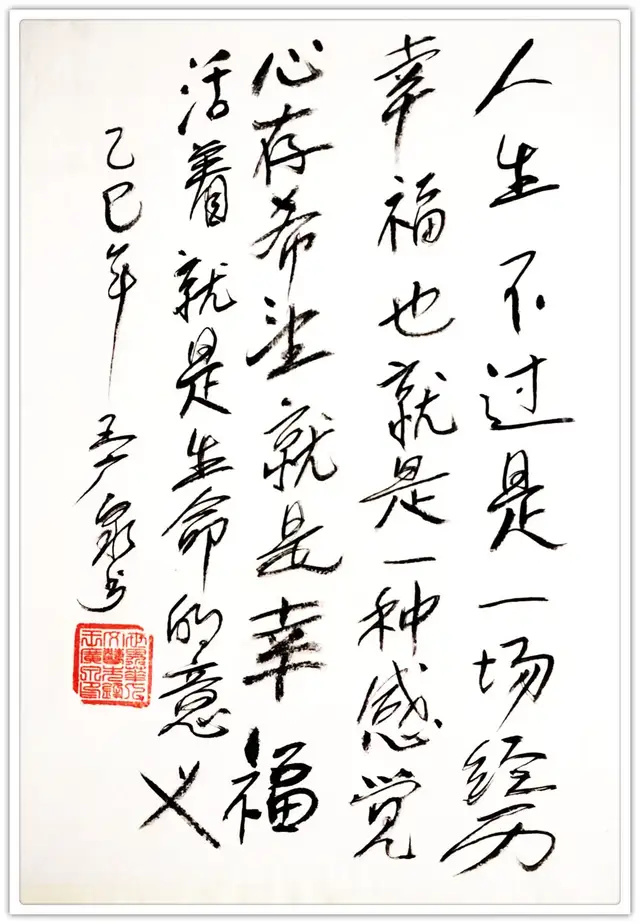 人生不过是一场经历
幸福也就是一种感觉
心存希望就是幸福
活着就是生命的意义
乙巳年 泉书